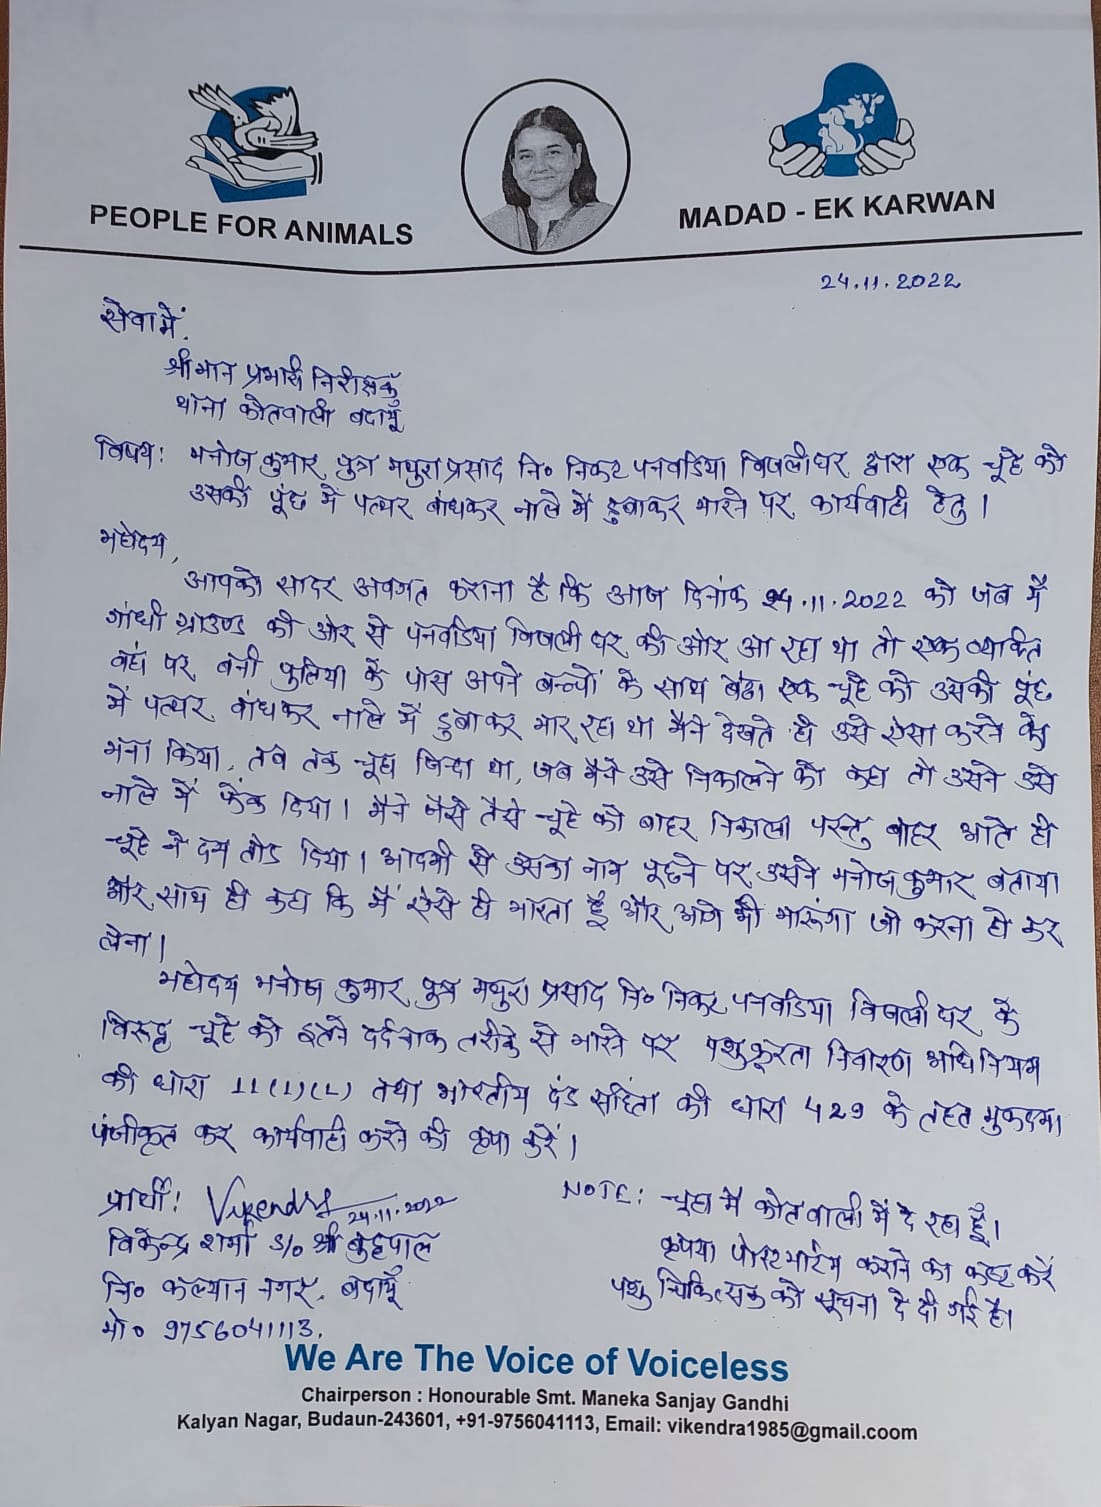 PEOPLE FOR ANIMALS
MADAD - EK KARWAN
24.11.2022
सेवा में,
श्रीमान प्रभारी निरीक्षक
थाना कोतवाली बदायूँ
विषय: मनोज कुमार पुत्र मथुरा प्रसाद नि० निकट पनवडिया बिजलीघर द्वारा एक चूहे को
उसकी पूंछ में पत्थर बांधकर नाले में डुबाकर मारने पर कार्यवाही हेतु।
महोदय,
आपको सादर अवगत कराना है कि आज दिनांक 24.11.2022 को जब मैं
गांधी ग्राउण्ड की ओर से पनवडिया बिजली घर की ओर आ रहा था तो एक व्यक्ति
वहां पर बनी पुलिया के पास अपने बच्चों के साथ बैठा एक चूहे को उसकी पूंछ
में पत्थर बांधकर नाले में डुबाकर मार रहा था मैंने देखते ही उसे ऐसा करने को
मना किया, तब तक चूहा जिन्दा था, जब मैंने उसे निकालने को कहा तो उसने उसे
नाले में फेंक दिया। मैंने जैसे तैसे चूहे को बाहर निकाला परन्तु बाहर आते ही
चूहे ने दम तोड दिया। आदमी से उसका नाम पूछने पर उसने मनोज कुमार बताया
और साथ ही कहा कि मैं ऐसे ही मारता हूँ और आगे भी मारूंगा जो करना हो कर
लेना।
महोदय मनोज कुमार पुत्र मथुरा प्रसाद नि० निकट पनवडिया बिजली घर के
विरूद्ध चूहे को इतने दर्दनाक तरीके से मारने पर पशु क्रूरता निवारण अधिनियम
की धारा 11(1)(L) तथा भारतीय दंड संहिता की धारा 429 के तहत मुकदमा
पंजीकृत कर कार्यवाही करने की कृपा करें।
प्रार्थी: Vikendra 24.11.2022
विकेन्द्र शर्मा s/o श्री बुद्धपाल
नि० कल्यान नगर, बदायूँ
मो० 9756041113,
NOTE: चूहा मैं कोतवाली में दे रहा हूँ।
कृपया पोस्टमार्टम कराने का कष्ट करें
पशु चिकित्सक को सूचना दे दी गई है।
We Are The Voice of Voiceless
Chairperson : Honourable Smt. Maneka Sanjay Gandhi
Kalyan Nagar, Budaun-243601, +91-9756041113, Email: vikendra1985@gmail.coom